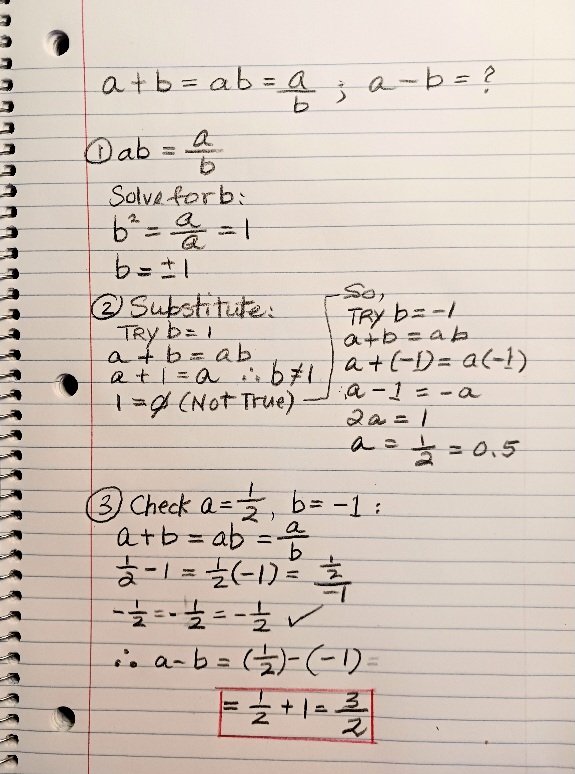 a + b = ab = a/b ; a - b = ?
① ab = a/b
Solve for b:
b² = a/a = 1
b = ±1
② Substitute:
TRY b = 1
a + b = ab
a + 1 = a ∴ b ≠ 1
1 = 0 (Not True)
So,
TRY b = -1
a + b = ab
a + (-1) = a(-1)
a - 1 = -a
2a = 1
a = 1/2 = 0.5
③ Check a = 1/2, b = -1 :
a + b = ab = a/b
1/2 - 1 = 1/2(-1) = 1/2/-1
-1/2 = -1/2 = -1/2 ✓
∴ a - b = (1/2) - (-1) =
= 1/2 + 1 = 3/2